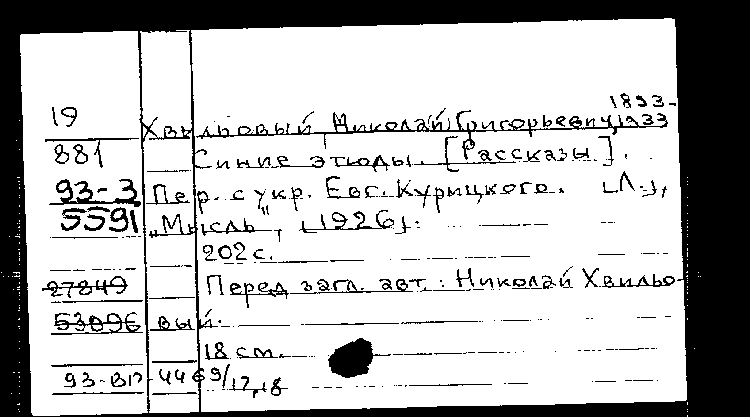 1893-
19 Хвыльовый, Николай Григорьевич, 1933
881 Синие этюды. [Рассказы].
93-3 Пер. с укр. Евг. Курицкого. [Л.],
5591 „Мысль", [1926].
202 с.
27849 Перед загл. авт.: Николай Хвильо-
53096 вый.
18 см.
93-ВП-4469/17,18